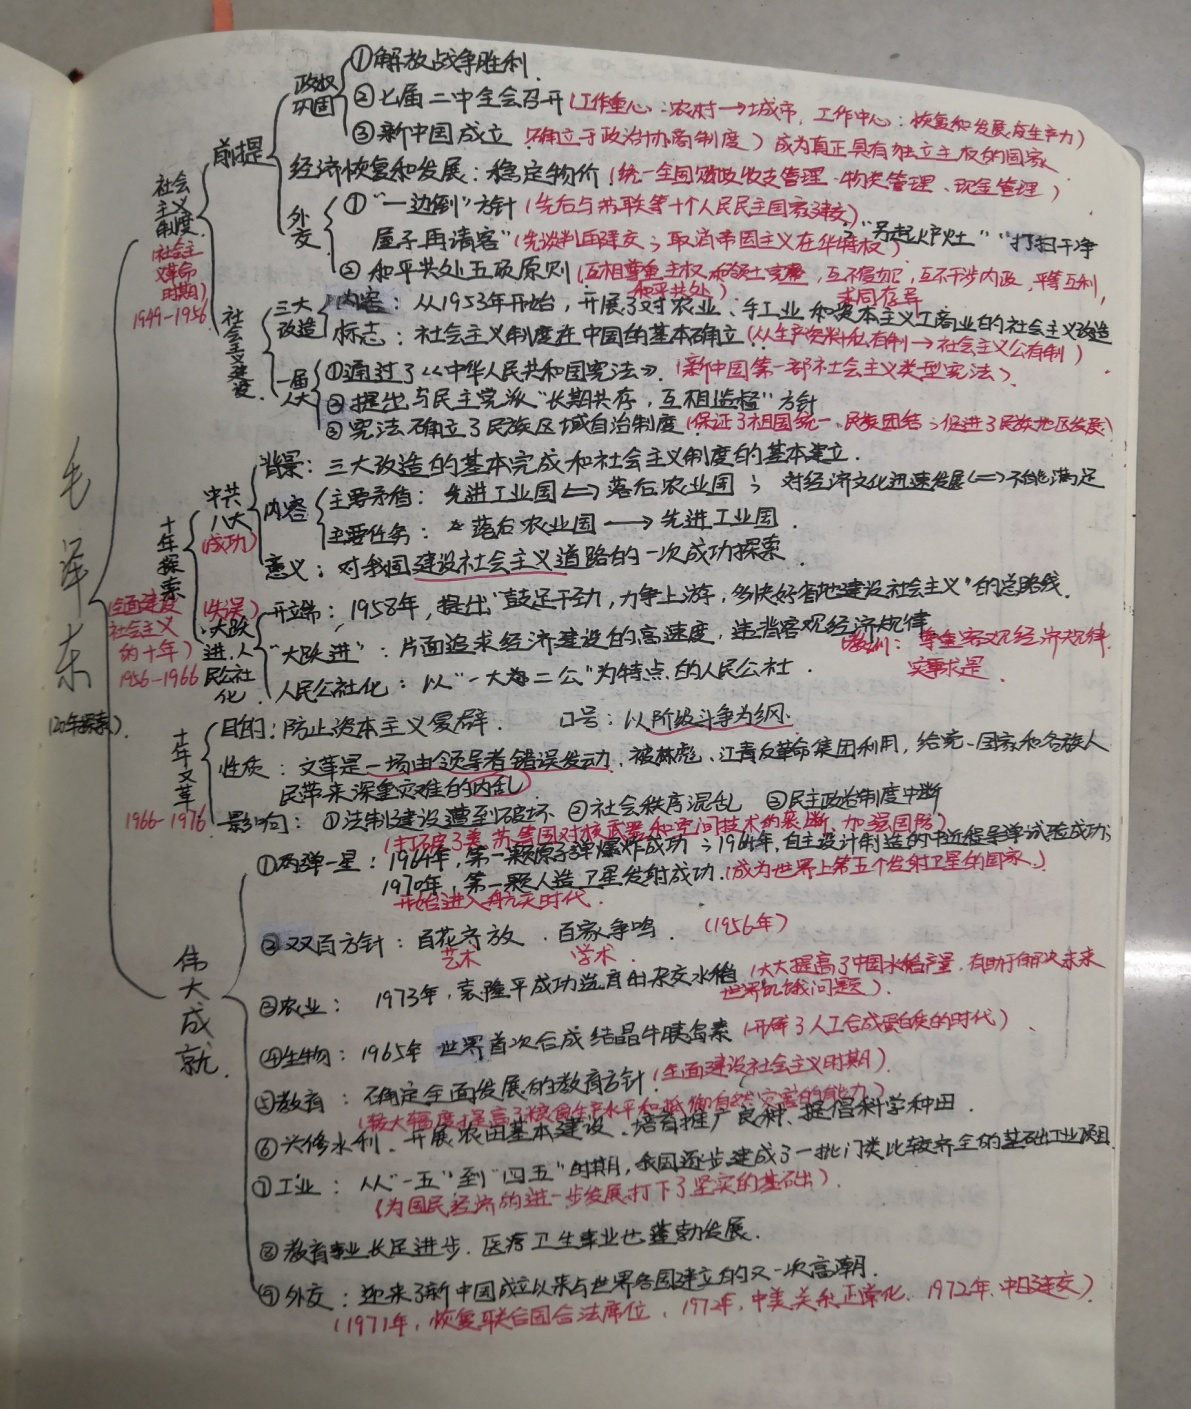 毛泽东
(20年探索)
社会主义制度
(社会主义革命时期)
1949-1956
前提
政权巩固
①解放战争胜利.
②七届二中全会召开(工作重心:农村→城市, 工作中心:恢复和发展生产力)
③新中国成立 (确立于政治协商制度) 成为真正具有独立主权的国家
经济恢复和发展:稳定物价(统一全国财政收支管理、物资管理、现金管理)
外交
①"一边倒"方针(先后与苏联等十个人民民主国家建交)
"另起炉灶" "打扫干净
屋子再请客"(先谈判后建交;取消帝国主义在华特权)
②和平共处五项原则(互相尊重主权和领土完整,互不侵犯,互不干涉内政,平等互利,
和平共处) 求同存异
社会主义建设
三大改造
内容:从1953年开始,开展了对农业、手工业和资本主义工商业的社会主义改造
标志:社会主义制度在中国的基本确立(从生产资料私有制→社会主义公有制)
一届人大
①通过了《中华人民共和国宪法》.(新中国第一部社会主义类型宪法)
②提出与民主党派"长期共存,互相监督"方针
③宪法确立了民族区域自治制度(保证了祖国统一、民族团结;促进了民族地区发展)
十年探索
(全面建设社会主义的十年)
1956-1966
中共八大
(成功)
背景:三大改造的基本完成和社会主义制度的基本建立.
内容
主要矛盾:先进工业国⇔落后农业国;对经济文化迅速发展⇔不能满足
主要任务:落后农业国→先进工业国.
意义:对我国建设社会主义道路的一次成功探索
(失误)
大跃进,人民公社化
开端:1958年,提出"鼓足干劲,力争上游,多快好省地建设社会主义"的总路线.
"大跃进":片面追求经济建设的高速度,违背客观经济规律
教训:尊重客观经济规律.
实事求是
人民公社化:以"一大为二公"为特点的人民公社.
十年文革
1966-1976
目的:防止资本主义复辟. 口号:以阶级斗争为纲.
性质:文革是一场由领导者错误发动,被林彪、江青反革命集团利用,给党、国家和各族人
民带来深重灾难的内乱
影响:①法制建设遭到破坏 ②社会秩序混乱 ③民主政治制度中断
伟大成就.
(打破了美苏等国对核武器和空间技术的垄断,加强国防)
①两弹一星:1964年,第一颗原子弹爆炸成功;1964年,自主设计制造的中近程导弹试验成功;
1970年,第一颗人造卫星发射成功.(成为世界上第五个发射卫星的国家.)
开始进入航天时代.
②双百方针:百花齐放.百家争鸣. (1956年)
艺术 学术.
③农业: 1973年,袁隆平成功选育的杂交水稻(大大提高了中国水稻产量,有助于解决未来
世界饥饿问题).
④生物:1965年 世界首次合成结晶牛胰岛素(开辟了人工合成蛋白质的时代)
⑤教育: 确定全面发展的教育方针.(全面建设社会主义时期).
(较大幅度提高了粮食生产水平和抵御自然灾害的能力)
⑥兴修水利、开展农田基本建设、培育推广良种、提倡科学种田.
⑦工业: 从"一五"到"四五"时期,我国逐步建成了一批门类比较齐全的基础工业项目
(为国民经济的进一步发展打下了坚实的基础).
⑧教育事业长足进步.医疗卫生事业也蓬勃发展.
⑨外交:迎来了新中国成立以来与世界各国建立的又一次高潮.
(1971年,恢复联合国合法席位,1972年,中美关系正常化、1972年、中日建交)